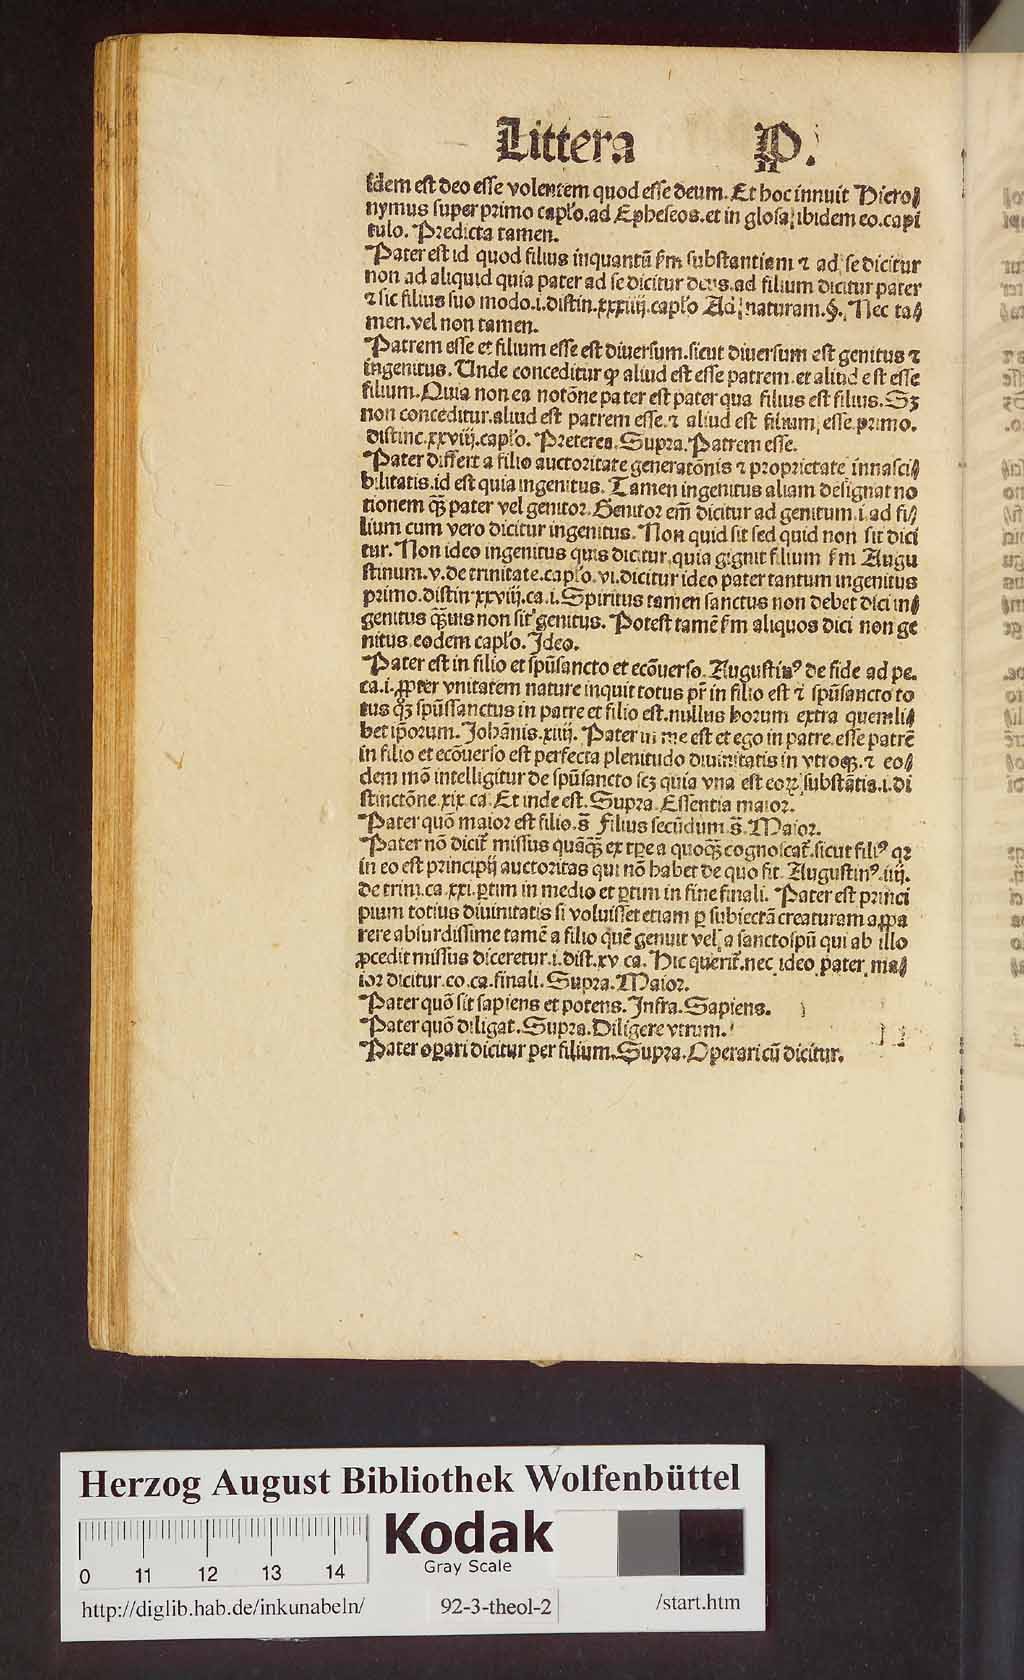 Littera P.
idem est deo esse volentem quod esse deum. Et hoc innuit Hiero⸗
nymus super primo capľo. ad Epheseos. et in glosa ibidem eo. capi
tulo. Predicta tamen.
Pater est id quod filius inquantū ẜm substantiam ⁊ ad se dicitur
non ad aliquid quia pater ad se dicitur deus. ad filium dicitur pater
⁊ sic filius suo modo. i. distin. xxxiiij. capľo Ad naturam. §. Nec ta⸗
men. vel non tamen.
Patrem esse et filium esse est diuersum. sicut diuersum est genitus ⁊
ingenitus. Unde conceditur ꝙ aliud est esse patrem. et aliud est esse
filium. Quia non ea notōne pater est pater qua filius est filius. Sꝫ
non conceditur. aliud est patrem esse. ⁊ aliud est filium esse. primo.
distinc. xxviij. capľo. Preterea. Supra. Patrem esse.
Pater differt a filio auctoritate generatōnis ⁊ proprietate innasci⸗
bilitatis. id est quia ingenitus. Tamen ingenitus aliam designat no
tionem qȝ̄ pater vel genitor. Genitor em̄ dicitur ad genitum. i. ad fi⸗
lium cum vero dicitur ingenitus. Non quid sit sed quid non sit dici
tur. Non ideo ingenitus quis dicitur. quia gignit filium ẜm Augu
stinum. v. de trinitate. capľo. vi. dicitur ideo pater tantum ingenitus
primo. distin. xxviij. ca. i. Spiritus tamen sanctus non debet dici in⸗
genitus qȝ̄uis non sit genitus. Potest tamē ẜm aliquos dici non ge
nitus eodem capľo. Ideo.
Pater est in filio et spūsancto et ecōuerso. Augustinꝰ de fide ad pe.
ca. i. ꝓpter vnitatem nature inquit totus pr̄ in filio est ⁊ spūsancto to
tus qȝ spūssanctus in patre et filio est. nullus horum extra quemli⸗
bet ip̄orum. Johānis. xiiij. Pater in me est et ego in patre. esse patrē
in filio et ecōuerso est perfecta plenitudo diuinitatis in vtroqȝ. ⁊ eo⸗
dem mō intelligitur de spūsancto scȝ quia vna est eoꝝ substātia. i. di
stinctōne. xix. ca. Et inde est. Supra. Essentia maior.
Pater quō maior est filio. s̄ Filius secūdum. s̄. Maior.
Pater nō dicit᷑ missus quāqȝ̄ ex tpe a quoqȝ cognoscat᷑. sicut filiꝰ qꝛ
in eo est principij auctoritas qui nō habet de quo sit. Augustinꝰ. iiij.
de trini. ca. xxi. ꝑtim in medio et ꝑtim in fine finali. Pater est princi
pium totius diuinitatis si voluisset etiam ꝑ subiectā creaturam aꝑpa
rere absurdissime tamē a filio quē genuit vel a sanctospū qui ab illo
ꝓcedit missus diceretur. i. dist. xv ca. Hic querit᷑. nec ideo pater ma⸗
ior dicitur. eo. ca. finali. Supra. Maior.
Pater quō sit sapiens et potens. Infra. Sapiens.
Pater quō diligat. Supra. Diligere vtrum.
Pater oꝑari dicitur per filium. Supra. Operari cū dicitur.
Herzog August Bibliothek Wolfenbüttel
0 11 12 13 14
Kodak
Gray Scale
http://diglib.hab.de/inkunabeln/ 92-3-theol-2 /start.htm